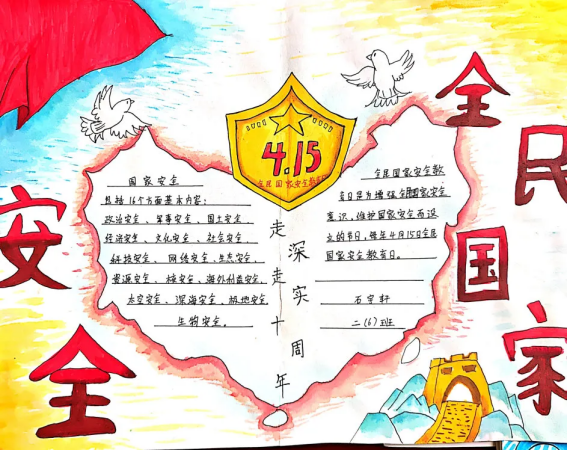 全民国家
安全
4.15
全民国家安全教育日
国家安全
包括16个方面基本内容:
政治安全、军事安全、国土安全、
经济安全、文化安全、社会安全、
科技安全、网络安全、生态安全、
资源安全、核安全、海外利益安全、
太空安全、深海安全、极地安全、
生物安全。
走深走实
十周年
全民国家安全教
育日是为增强全民国家安全
意识,维护国家安全而设
立的节日,每年4月15日全民
国家安全教育日。
石宇轩
二(6)班